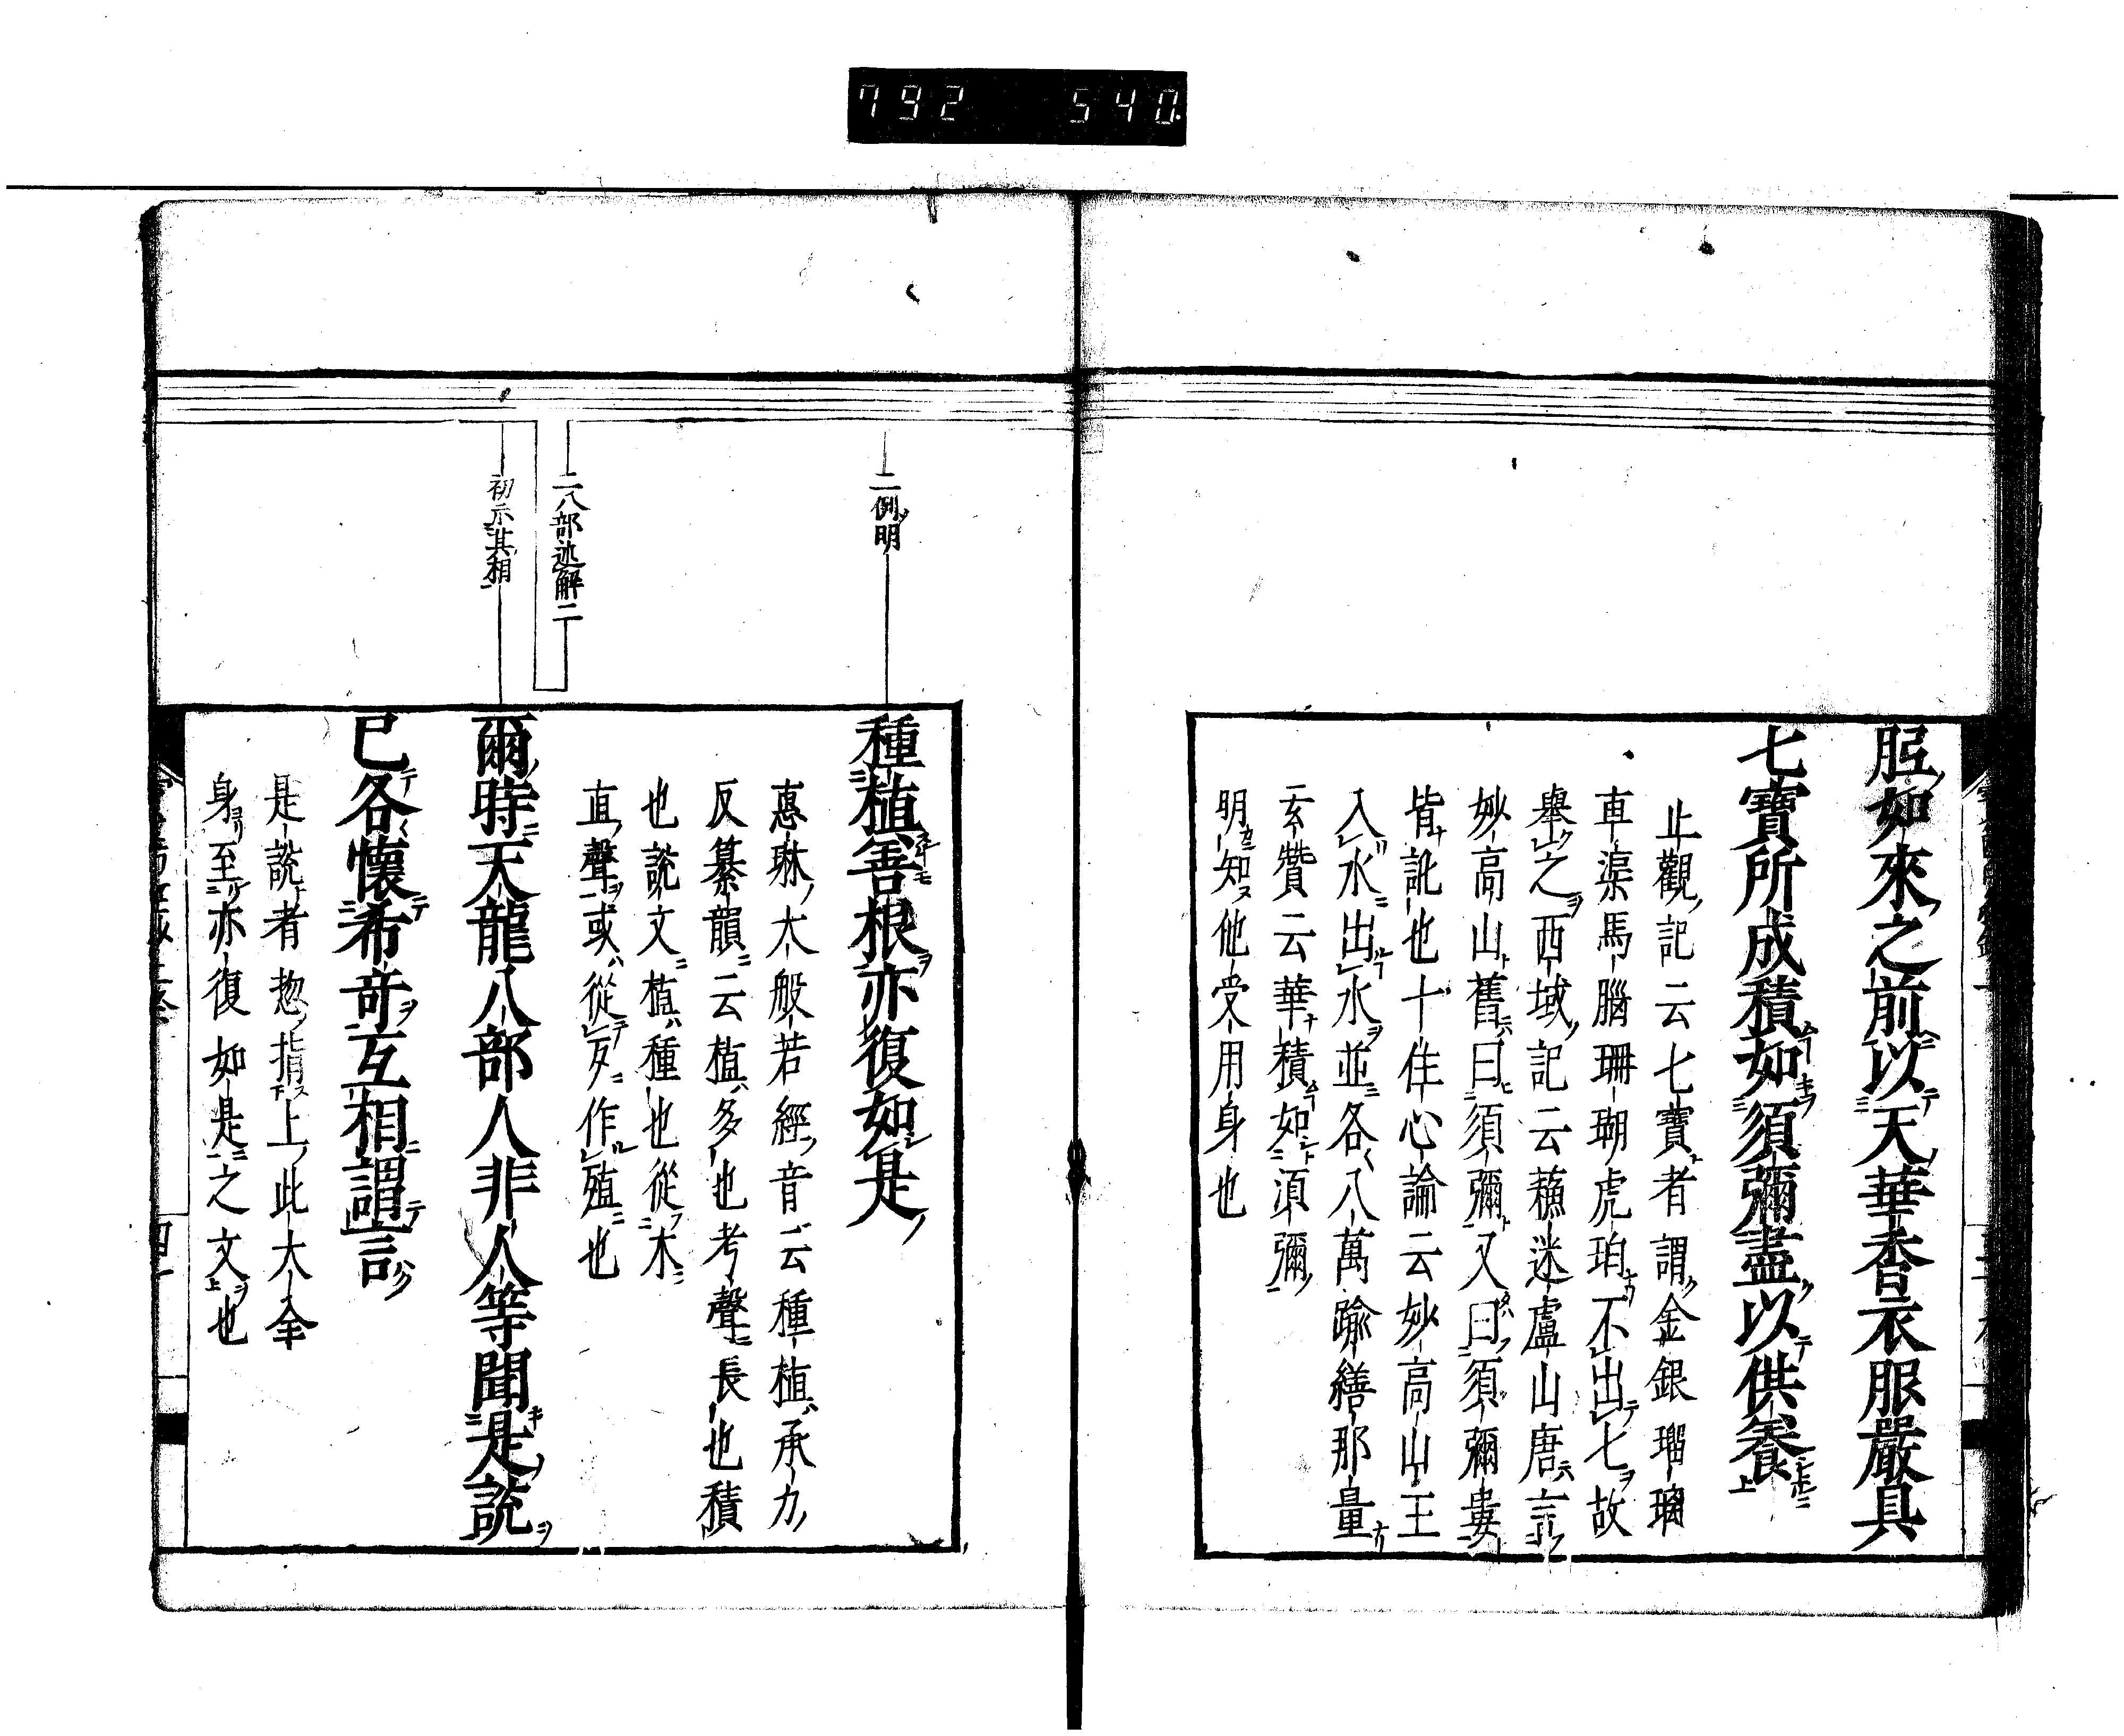 792 540
胝如來之前以天華香衣服嚴具
七寶所成積如須彌盡以供養
止觀記云七寶者謂金銀瑠璃
車渠馬腦珊瑚虎珀不出七故
舉之西域記云蘓迷盧山唐言
妙高山舊曰須彌又曰須彌婁
皆訛也十住心論云妙高山王
入水出水並各八萬踰繕那量
玄贊云華積如須彌
明知他受用身也
二例明
種植善根亦復如是
惠琳大般若經音云種植承力
反纂韻云植多也考聲長也積
也說文植種也從木
直聲或從歹作殖也
二八部述解二
初示其相
爾時天龍八部人非人等聞是說
已各懷希奇互相謂言
是說者惣指上此大
身至亦復如是之文也